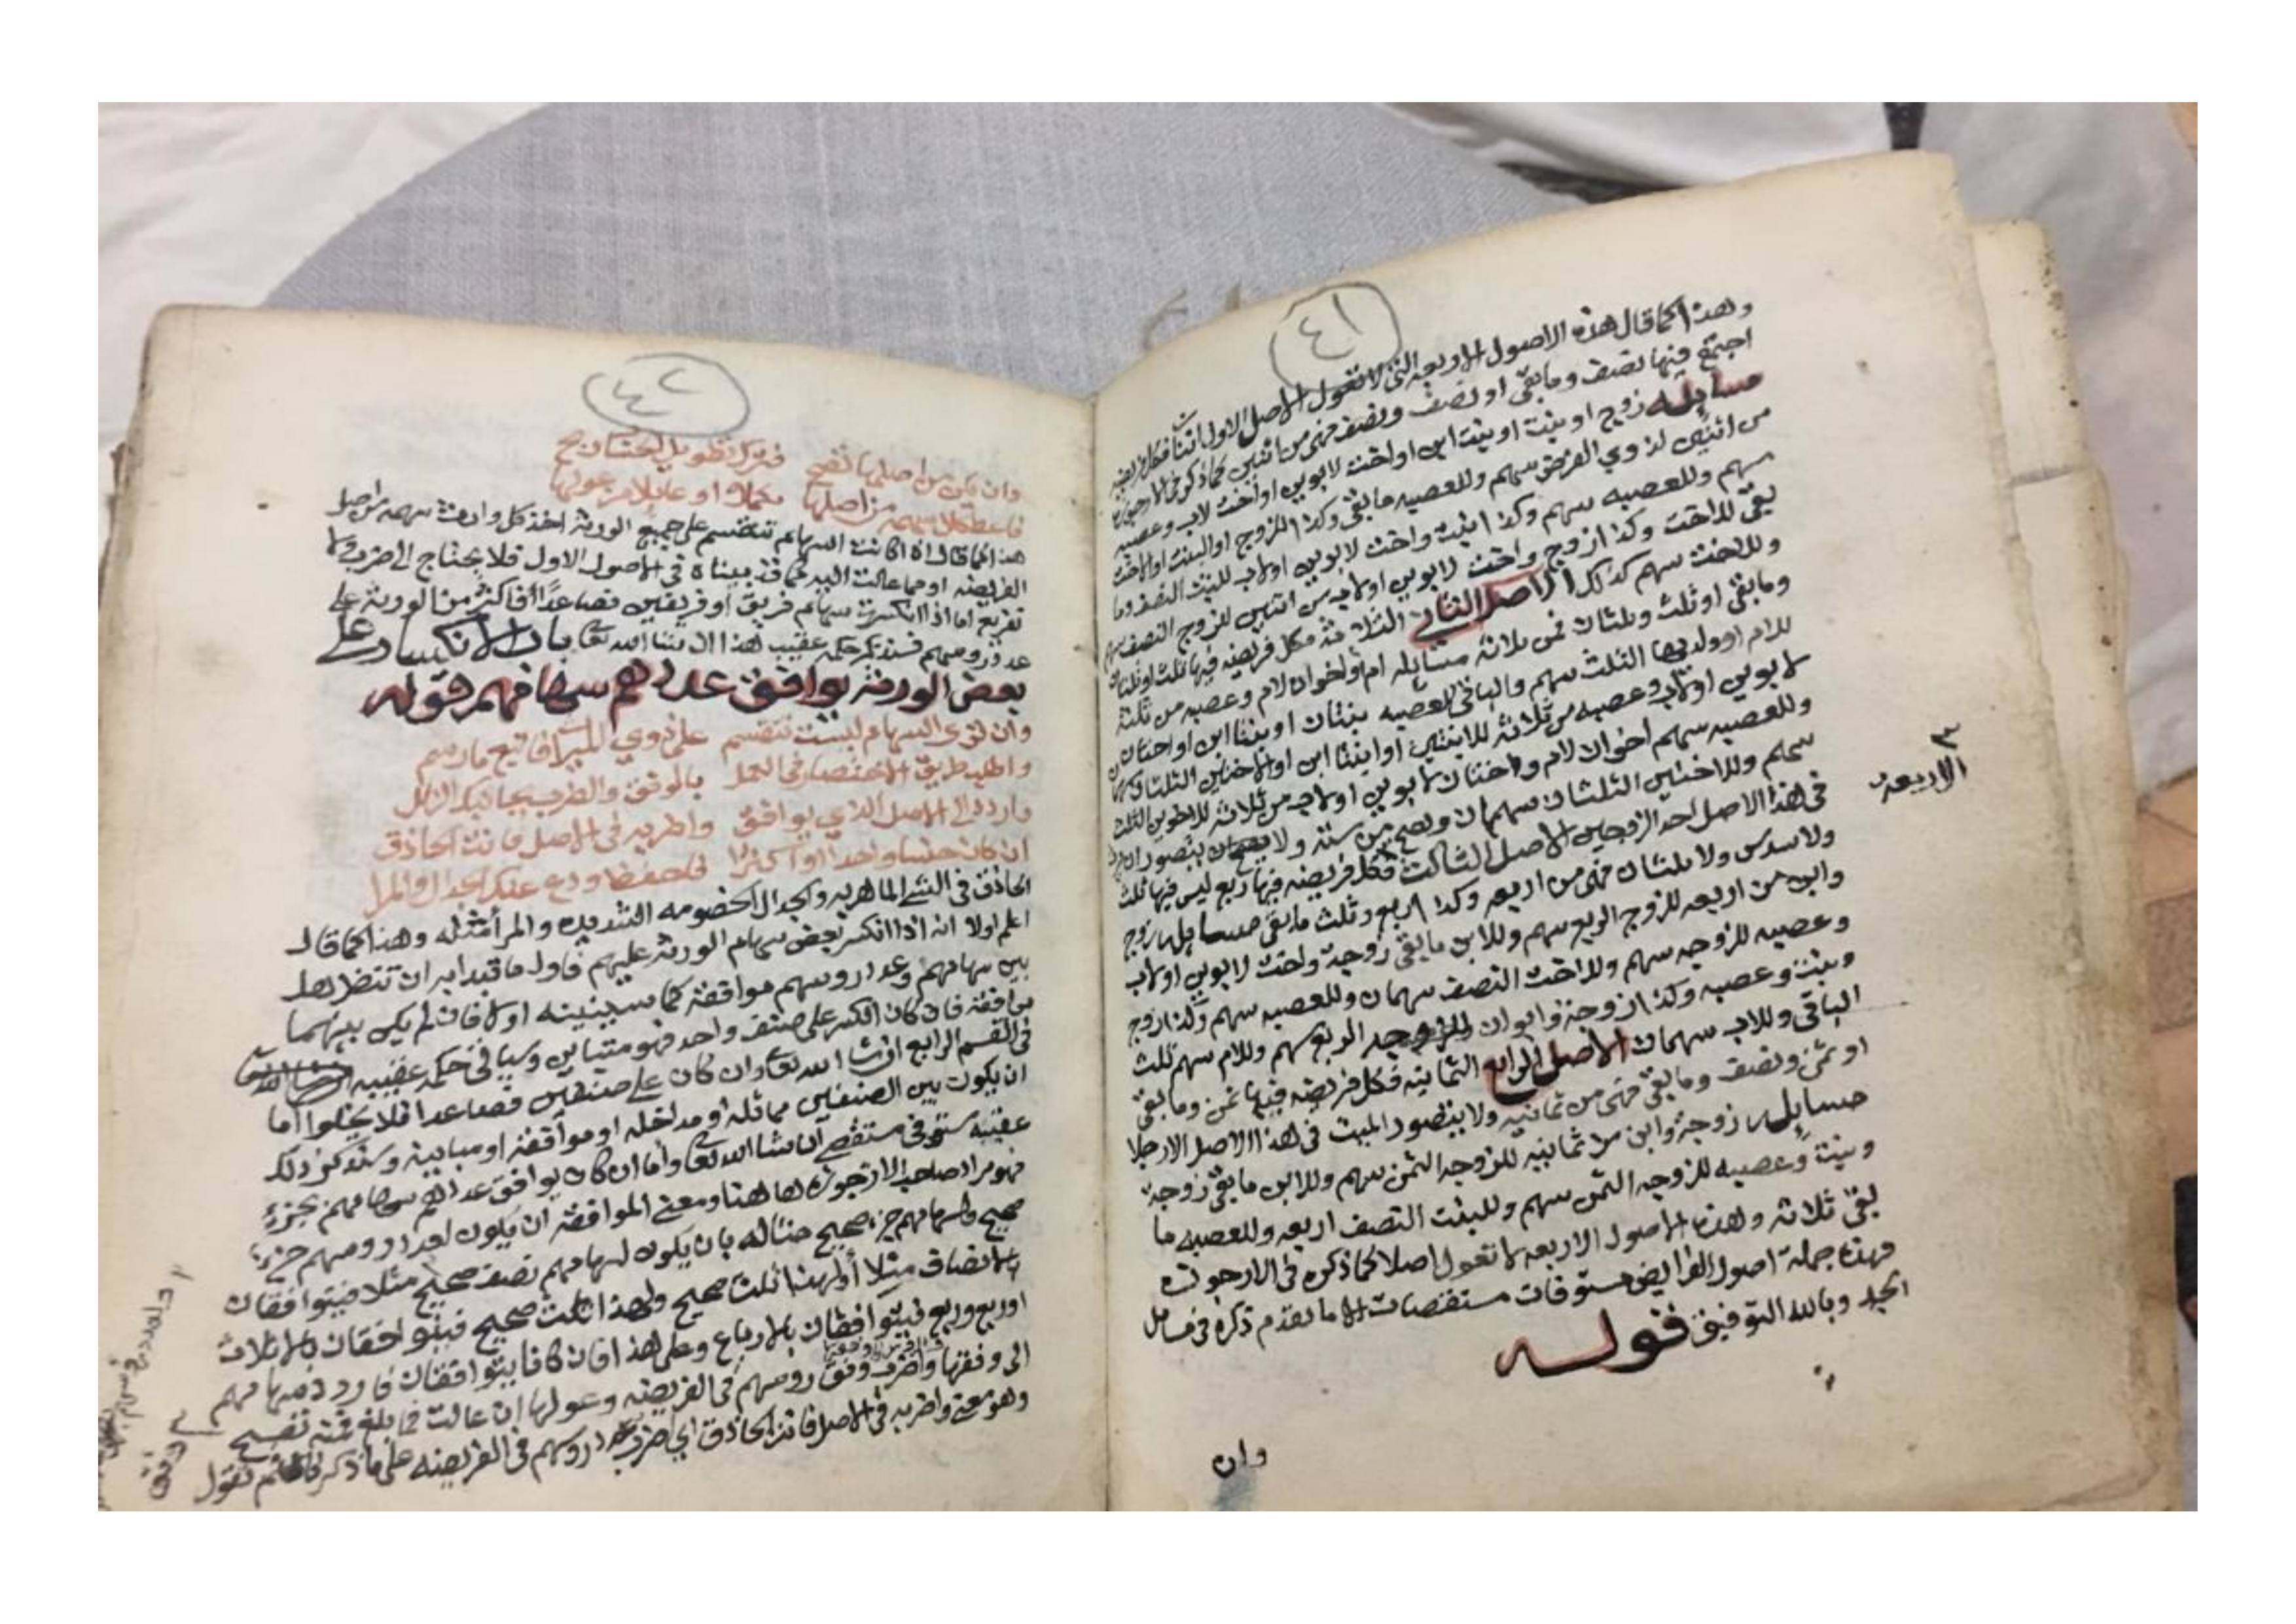 ٤١
وهذا كما قال هذه الاصول الاربعه التي لا تعول الاصل الاول اثنان فكل فريضه
اجتمع فيها نصف وما بقى او نصف ونصف فهى من اثنين كما ذكر في الارجوزة
مسايله زوج او بنت او بنت ابن او اخت لابوين او اخت لاب وعصبه
من اثنين لذوي الفرض سهم وللعصبه ما بقى وكذا للزوج او البنت او الاخت
سهم وللعصبه سهم وكذا بنت واخت لابوين او لاب للبنت النصف وما
بقى للاخت وكذا زوج واخت لابوين او لاب من اثنين للزوج النصف سهم
وللاخت سهم كذلك الاصل الثاني الثلاثة فكل فريضه فيها ثلث او ثلثان
وما بقى او ثلث وثلثان فمن ثلاثه مسايله ام او اخوان لام وعصبه من ثلثة
للام او ولديها الثلث سهم والباقي للعصبه بنتان او بنتا ابن او اختان
لابوين او لاب وعصبه من ثلاثة للابنتين او ابنتا ابن او الاختين الثلثان
وللعصبه سهم اخوان لام واختان لابوين او لاب من ثلاثة للاخوين الثلث
سهم وللاختين الثلثان سهمان وتصح من ستة ولا يتصور ان
في هذا الاصل احد الزوجين الاصل الثالث فكل فريضه فيها ربع ليس فيها ثلث
٣ الاربعه
ولا سدس ولا ثلثان فهى من اربعه وكذا ربع وثلث ما بقى مسايلها زوج
وابن من اربعه للزوج الربع سهم وللابن ما بقى زوجة واخت لابوين او لاب
وعصبه للزوجه سهم وللاخت النصف سهمان وللعصبه سهم وكذا زوج
وبنت وعصبه وكذا زوجة وابوان للزوجه الربع سهم وللام سهم ثلث
الباقى وللاب سهمان الاصل الرابع الثمانيه فكل فريضه فيها ثمن وما بقى
او ثمن ونصف وما بقى فهى من ثمانيه ولا يتصور الميت في هذا الاصل الا رجلا
مسايله زوجة وابن من ثمانيه للزوجه الثمن سهم وللابن ما بقى زوجة
وبنت وعصبه للزوجه الثمن سهم وللبنت النصف اربعه وللعصبه ما
بقى ثلاثه وهذه الاصول الاربعه لا تعول اصلا كما ذكره في الارجوزه
فهذه جملة اصول الفرايض مستوفات مستقصات الا ما تقدم ذكره في مسايل
الجد وبالله التوفيق قوله
وان
٤٢
وان تكن من اصلها تصح فترك تطويل الحساب ربح
فاعط كلا سهمه من اصلها مكملا او عايلا من عولها
هذا كما قال اذا كانت السهام تنقسم على جميع الورثه اخذ كل وارث سهمه من اصل
الفريضه او مما عالت اليه كما قد بيناه في الاصول الاول فلا يحتاج الى ضرب ولا
تفريع اما اذا انكسرت سهام فريق او فريقين فصاعدا فاكثر من الورثه على
عدد روسهم فسنذكر حكمه عقيب هذا ان شا الله تعا باب الانكسار على
بعض الورثه يوافق عددهم سهامهم قوله
وان ترى السهام ليست تنقسم على ذوي الميراث فاتبع ما رسم
واطلب طريق الاختصار في العمل بالوفق والضرب يجانبك الزلل
واردد الى الاصل الذي يوافق واضربه في الاصل فانت الحاذق
ان كان جنسا واحدا او اكثرا فاحفظ ودع عنك الجدال والمرا
الحاذق في الشي الماهر به والجدال الخصومه الشديده والمرا مثله وهذا كما قال
اعلم اولا انه اذا انكسر بعض سهام الورثه عليهم فاول ما تبدا به ان تنظر هل
بين سهامهم وعدد روسهم موافقة كما سنبينه اولا فان لم يكن بينهما
موافقة فان كان الكسر على صنف واحد فهو متباين وسياتي حكمه عقيبه
في القسم الرابع ان شا الله تعا وان كان على صنفين فصاعدا فلا يخلوا اما
ان يكون بين الصنفين مماثله او مداخله او موافقة او مباينه وسنذكر ذلك
عقيبه مستوفى مستقصى ان شا الله تعا واما ان كان يوافق عددهم سهامهم بجزء
فهو مراد صاحب الارجوزه هاهنا ومعنى الموافقة ان يكون لعدد روسهم جزء
صحيح ولسهامهم جزء صحيح مثاله بان يكون لسهامهم نصف صحيح مثلا فيتوافقان
بالانصاف مثلا او لهذا ثلث صحيح ولهذا ثلث صحيح فيتوافقان بالاثلاث
او ربع وربع فيتوافقان بالارباع وعلى هذا فان كانا يتوافقان فاردد سهامهم
الى وفقها واضرب وفق روسهم في الفريضه وعولها ان عالت فما بلغ فمنه تصح
وهو معنى واضربه في الاصل فانت الحاذق اي اضرب عدد روسهم في الفريضه على ما ذكر تقول
٣ وفق